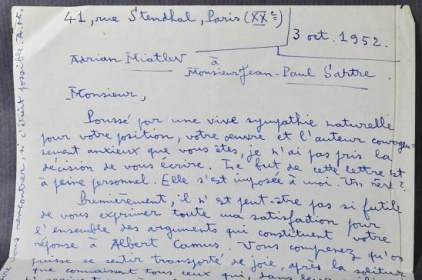 41, rue Stendhal, Paris (XXe)
3 oct. 1952.
Adrian Miatlev
à
Monsieur Jean-Paul Sartre
Monsieur,
Poussé par une vive sympathie naturelle
pour votre position, votre œuvre et l'auteur courageu-
sement anxieux que vous êtes, je n'ai pas pris la
décision de vous écrire. Le but de cette lettre est
à peine personnel. Elle s'est imposée à moi.
Premièrement, il n'est peut-être pas si futile
de vous exprimer toute ma satisfaction pour
l'ensemble des arguments qui constituent votre
réponse à Albert Camus. Vous comprenez qu'on
puisse se sentir transporté de joie, après la
que connaissent tous ceux qui, dans
rencontrer, si c'était possible. A.M.